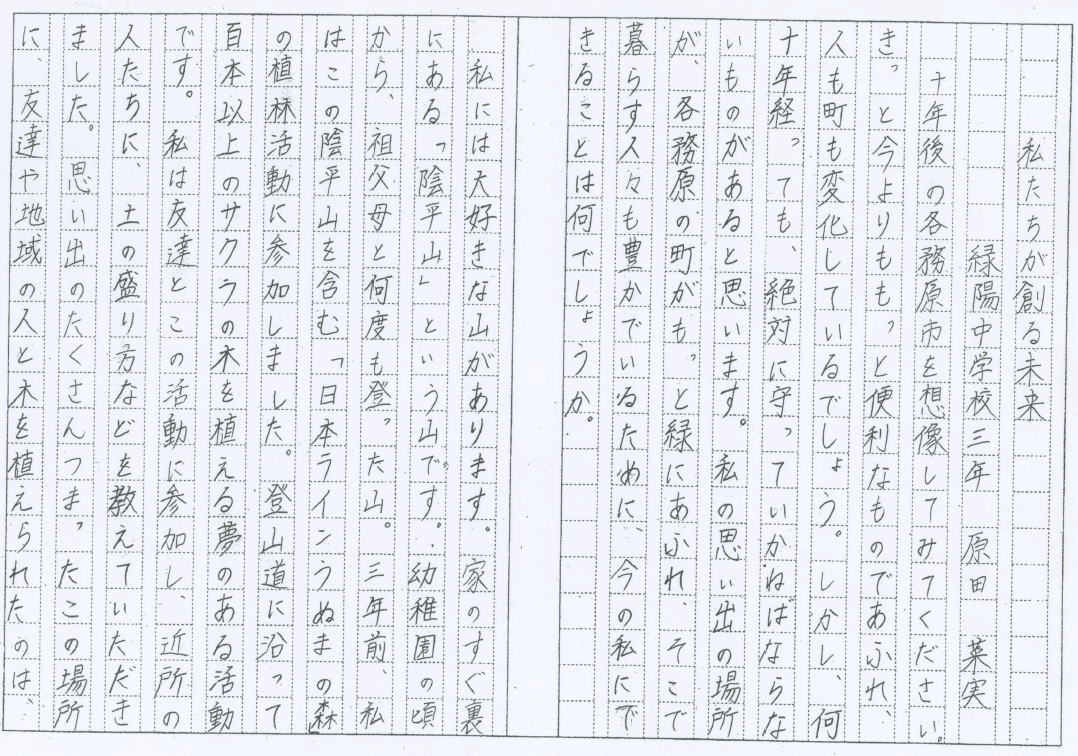 私たちが創る未来
緑陽中学校三年　原田　菜実
十年後の各務原市を想像してみてください。
きっと今よりももっと便利なものであふれ、
人も町も変化しているでしょう。しかし、何
十年経っても、絶対に守っていかねばならな
いものがあると思います。私の思い出の場所
が、各務原の町がもっと緑にあふれ、そこで
暮らす人々も豊かでいるために、今の私にで
きることは何でしょうか。
私には大好きな山があります。家のすぐ裏
にある「陰平山」という山です。幼稚園の頃
から、祖父母と何度も登った山。三年前、私
はこの陰平山を含む「日本ラインうぬまの森」
の植林活動に参加しました。登山道に沿って
百本以上のサクラの木を植える夢のある活動
です。私は友達とこの活動に参加し、近所の
人たちに、土の盛り方などを教えていただき
ました。思い出のたくさんつまったこの場所
に、友達や地域の人と木を植えられたのは、